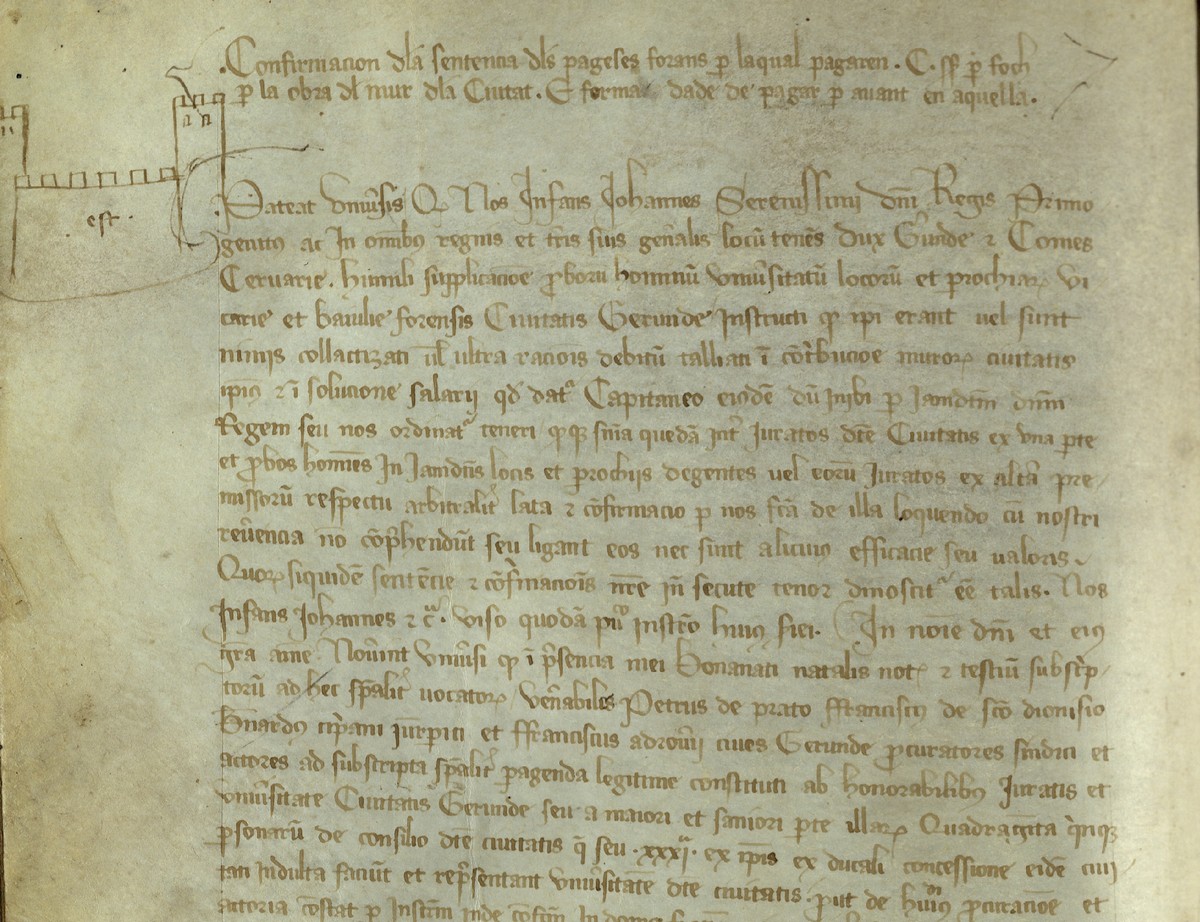 .Confirmacion dla sentencia dls pageses forans p laqual pagaren. C. ss p foch
p la obra dl mur dla Ciutat. E forma dade de pagar p auant en aquella.
Pateat vniusis Q Nos Infans Iohannes Serenissimi dni Regis Primo
genitus ac In omibus regnis et tris suis genalis locu tenes Dux Gunde et Comes
est.
Ceruarie. humili supplicacoe proboru hominu vniusitatu locoru et prochiar vi
carie et baiulie forensis Ciuitatis Gerunde Instructi q ipi erant uel sunt
nimis collactizati ul ultra racois debitu talliati i cotribucoe muror ciuitatis
ipius et i solucione salarij qd dat Capitaneo eiusde du Inibi p Iamdcm dnm
Regem seu nos ordinat teneri q snia queda int Iuratos dce Ciuitatis ex vna pte
et probos homies In Iamdcis locis et prochijs degentes uel eoru Iuratos ex alta pre
missoru respectu arbitralit lata et cofirmacio p nos fca de illa loquendo cu nostri
reuencia no coprhendut seu ligant eos nec sunt alicuius efficacie seu ualoris.
Quor siquide sentencie et cofirmacois nre in secute tenor dinoscit ee talis. Nos
Infans Iohannes et c. viso quoda pu instro huius siei. In noie dni et eius
gra ame Nouint vniusi q i presencia mei Bonanati natalis not et testiu subscrip
toru ad hec spalit uocator venabiles Petrus de prato ffranciscus de sco dionisio
Bnardus cipiani iurpiti et ffranciscus adrouij ciues Gerunde procuratores sindici et
actores ad subscripta spalit pagenda legitime constituti ab honorabilibus Iuratis et
vniusitate Ciuitatis Gerunde seu a maiori et saniori pte illar Quadraginta quinq
psonaru de consilio dce ciuitatis q seu .xxxi. ex ipis ex ducali concessione eide ciui
tati Indulta faciut et representant vniusitate dce ciuitatis. put de huius procuracoe et
actoria costat p Instrm Inde